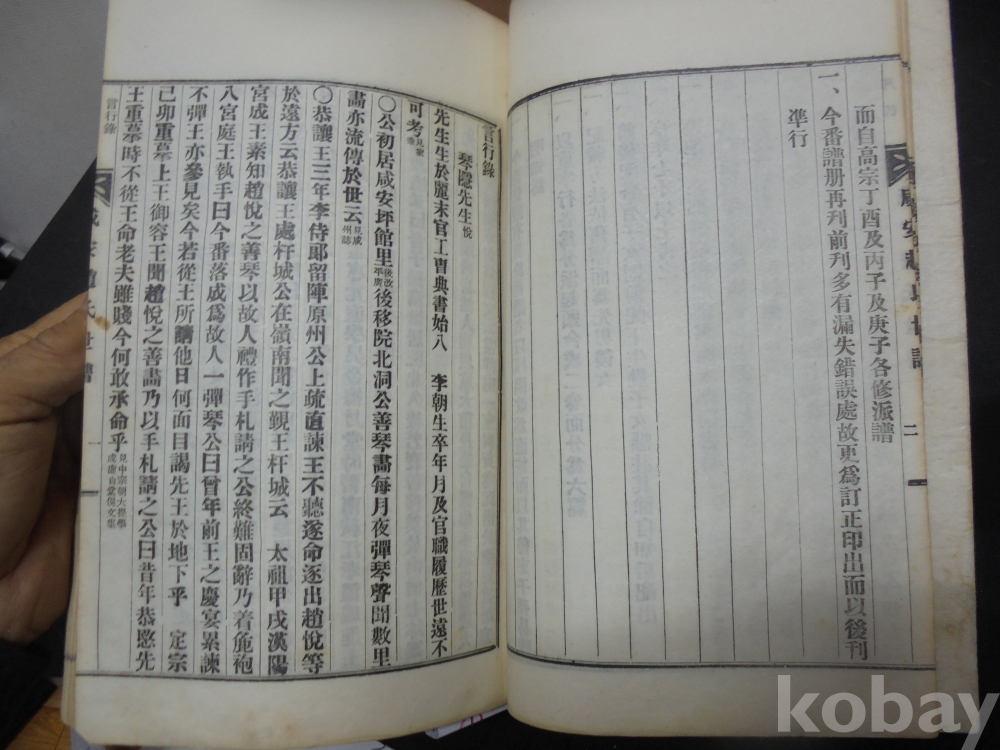 而自高宗丁酉及丙子及庚子各修派譜
一、今番譜册再刊前刊多有漏失錯誤處故更爲訂正印出而以後刊
準行
咸安趙氏世譜
二
言行錄
琴隱先生悅
先生生於麗末官工曹典書始八 李朝生卒年月及官職履歷世遠不
可考
〇公初居咸安坪館里後改平廣後移院北洞公善琴畵每月夜彈琴聲聞數里
畵亦流傳於世云見咸州誌
〇恭讓王三年李侍郞留陣原州公上疏直諫王不聽遂命逐出趙悅等
於遠方云恭讓王處杆城公在嶺南聞之覲王杆城云 太祖甲戌漢陽
宮成王素知趙悅之善琴以故人禮作手札請之公終難固辭乃着麁袍
入宮庭王執手曰今番落成爲故人一彈琴公曰曾年前王之慶宴累諫
不彈王亦參見矣今若從王所請他日何面目謁先王於地下乎 定宗
己卯重墓上王御容王聞趙悅之善畵乃以手札請之公曰昔年恭愍先
王重墓時不從王命老夫雖賤今何敢承命乎見中宗朝大提學成慵
言行錄
咸安趙氏世譜
一
kobay